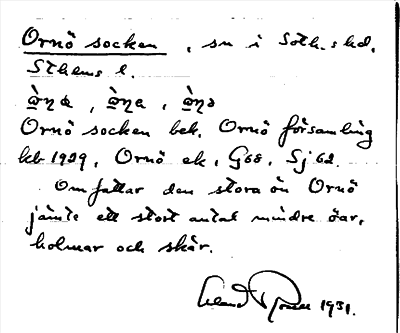 Ornö socken, sn i Soth. skd,
Sthlms l.
Ornö socken bek. Ornö församling
kb 1929, Ornö ek, G68, Sj 62.
Omfattar den stora ön Ornö
jämte ett stort antal mindre öar,
holmar och skär.
1931.